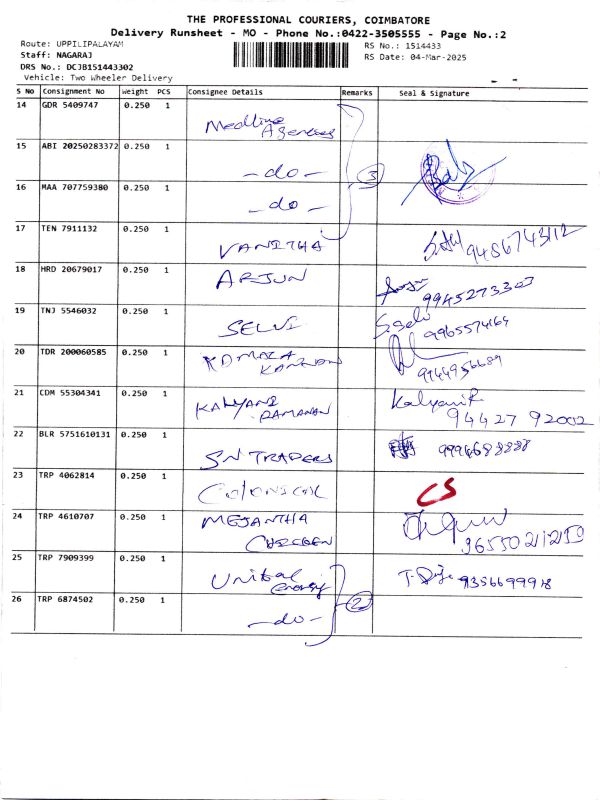 THE PROFESSIONAL COURIERS, COIMBATORE
Delivery Runsheet - MO - Phone No.:0422-3505555 - Page No.:2
Route: UPPILIPALAYAM
RS No.: 1514433
Staff: NAGARAJ
RS Date: 04-Mar-2025
DRS No.: DCJB151443302
Vehicle: Two Wheeler Delivery
S No Consignment No Weight PCS Consignee Details Remarks Seal & Signature
14 GDR 5409747 0.250 1 Medline Agencies
15 ABI 20250283372 0.250 1 -do- 3
16 MAA 707759380 0.250 1 -do-
17 TEN 7911132 0.250 1 VANITHA 9486743112
18 HRD 20679017 0.250 1 ARJUN 9945273303
19 TNJ 5546032 0.250 1 SELVI S.Selvi 9965574164
20 TDR 200060585 0.250 1 KANNAN 9944956689
21 CDM 55304341 0.250 1 KALYANI RAMANAN Kalyani R 94427 92002
22 BLR 5751610131 0.250 1 SN TRADERS 9994688888
23 TRP 4062814 0.250 1 CS
24 TRP 4610707 0.250 1 CHICKEN 9655021250
25 TRP 7909399 0.250 1 energy 9356699918
26 TRP 6874502 0.250 1 -do- 2